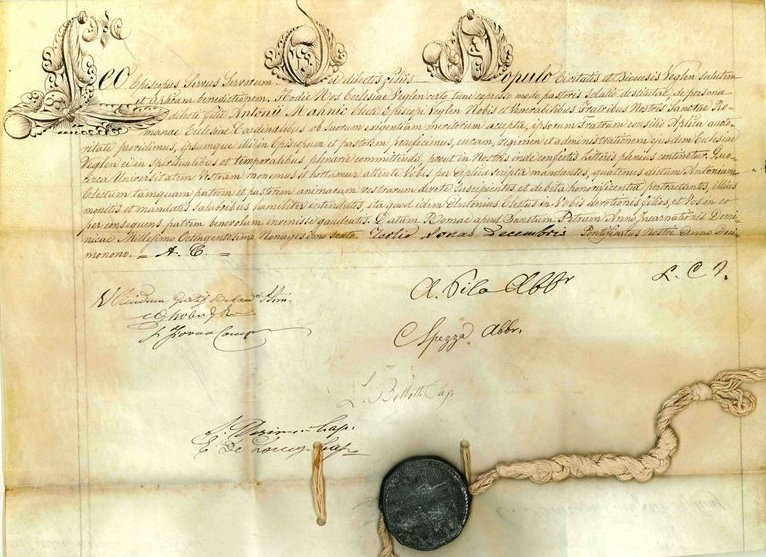 Leo Episcopus Servus Servorum Dei dilectis filiis Populo Civitatis et Diœcesis Veglen salutem
et Aplicam benedictionem. Hodie Nos Ecclesiae Veglen certo tunc expresso modo, pastoris solatio destitutae, de persona
dilecti filii Antonii Electi Episcopi Veglen Nobis et Venerabilibus Fratribus Nostris Sanctae Ro-
manae Ecclesiae Cardinalibus ob suorum exigentiam meritorum accepta, ipsorum Fratrum consilio Aplica aucto-
ritate providimus, ipsumque illi in Episcopum et pastorem praeficimus, curam, regimen et administrationem ejusdem Ecclesiae
Veglen ei in Spiritualibus et Temporalibus plenarie committendo, prout in Nostris inde confectis Litteris plenius continetur. Quo-
circa Universitatem Vestram monemus et hortamur attente Vobis per Aplica scripta mandantes, quatenus dictum Antonium
Electum tamquam patrem et pastorem animarum vestrarum devote suscipientes et debita honorificentia pertractantes, illius
monitis et mandatis salubribus humiliter intendatis, ita quod idem Antonius Electus in Vobis devotionis filios, et Vos in eo
per consequens patrem benevolum invenisse gaudeatis. Datum Romae apud Sanctum Petrum Anno Incarnationis Domi-
nicae Millesimo Octingentesimo Nonagesimo sexto Tertio Nonas Decembris Pontificatus Nostri Anno Deci-
monono. = A. C. =
A. Pila Abbr
L. C. D.
Spezza Abbr.